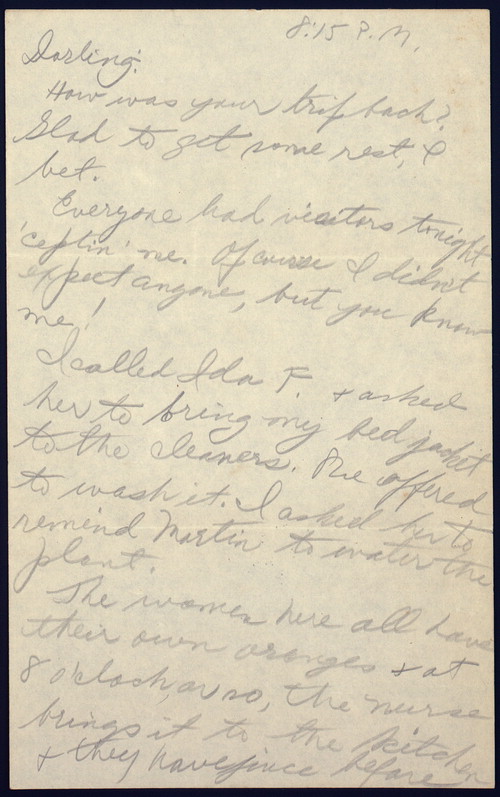 8:15 P.M.
Darling:
How was your trip back?
Glad to get some rest, I
bet.
Everyone had visitors tonight
'ceptin' me. Of course I didn't
expect anyone, but you know
me!
I called Ida F. & asked
her to bring my bed jacket
to the cleaners. She offered
to wash it. I asked her to
remind Martin to water the
plant.
The women here all have
their own oranges & at
8 o'clock, or so, the nurse
brings it to the kitchen
& they have juice before